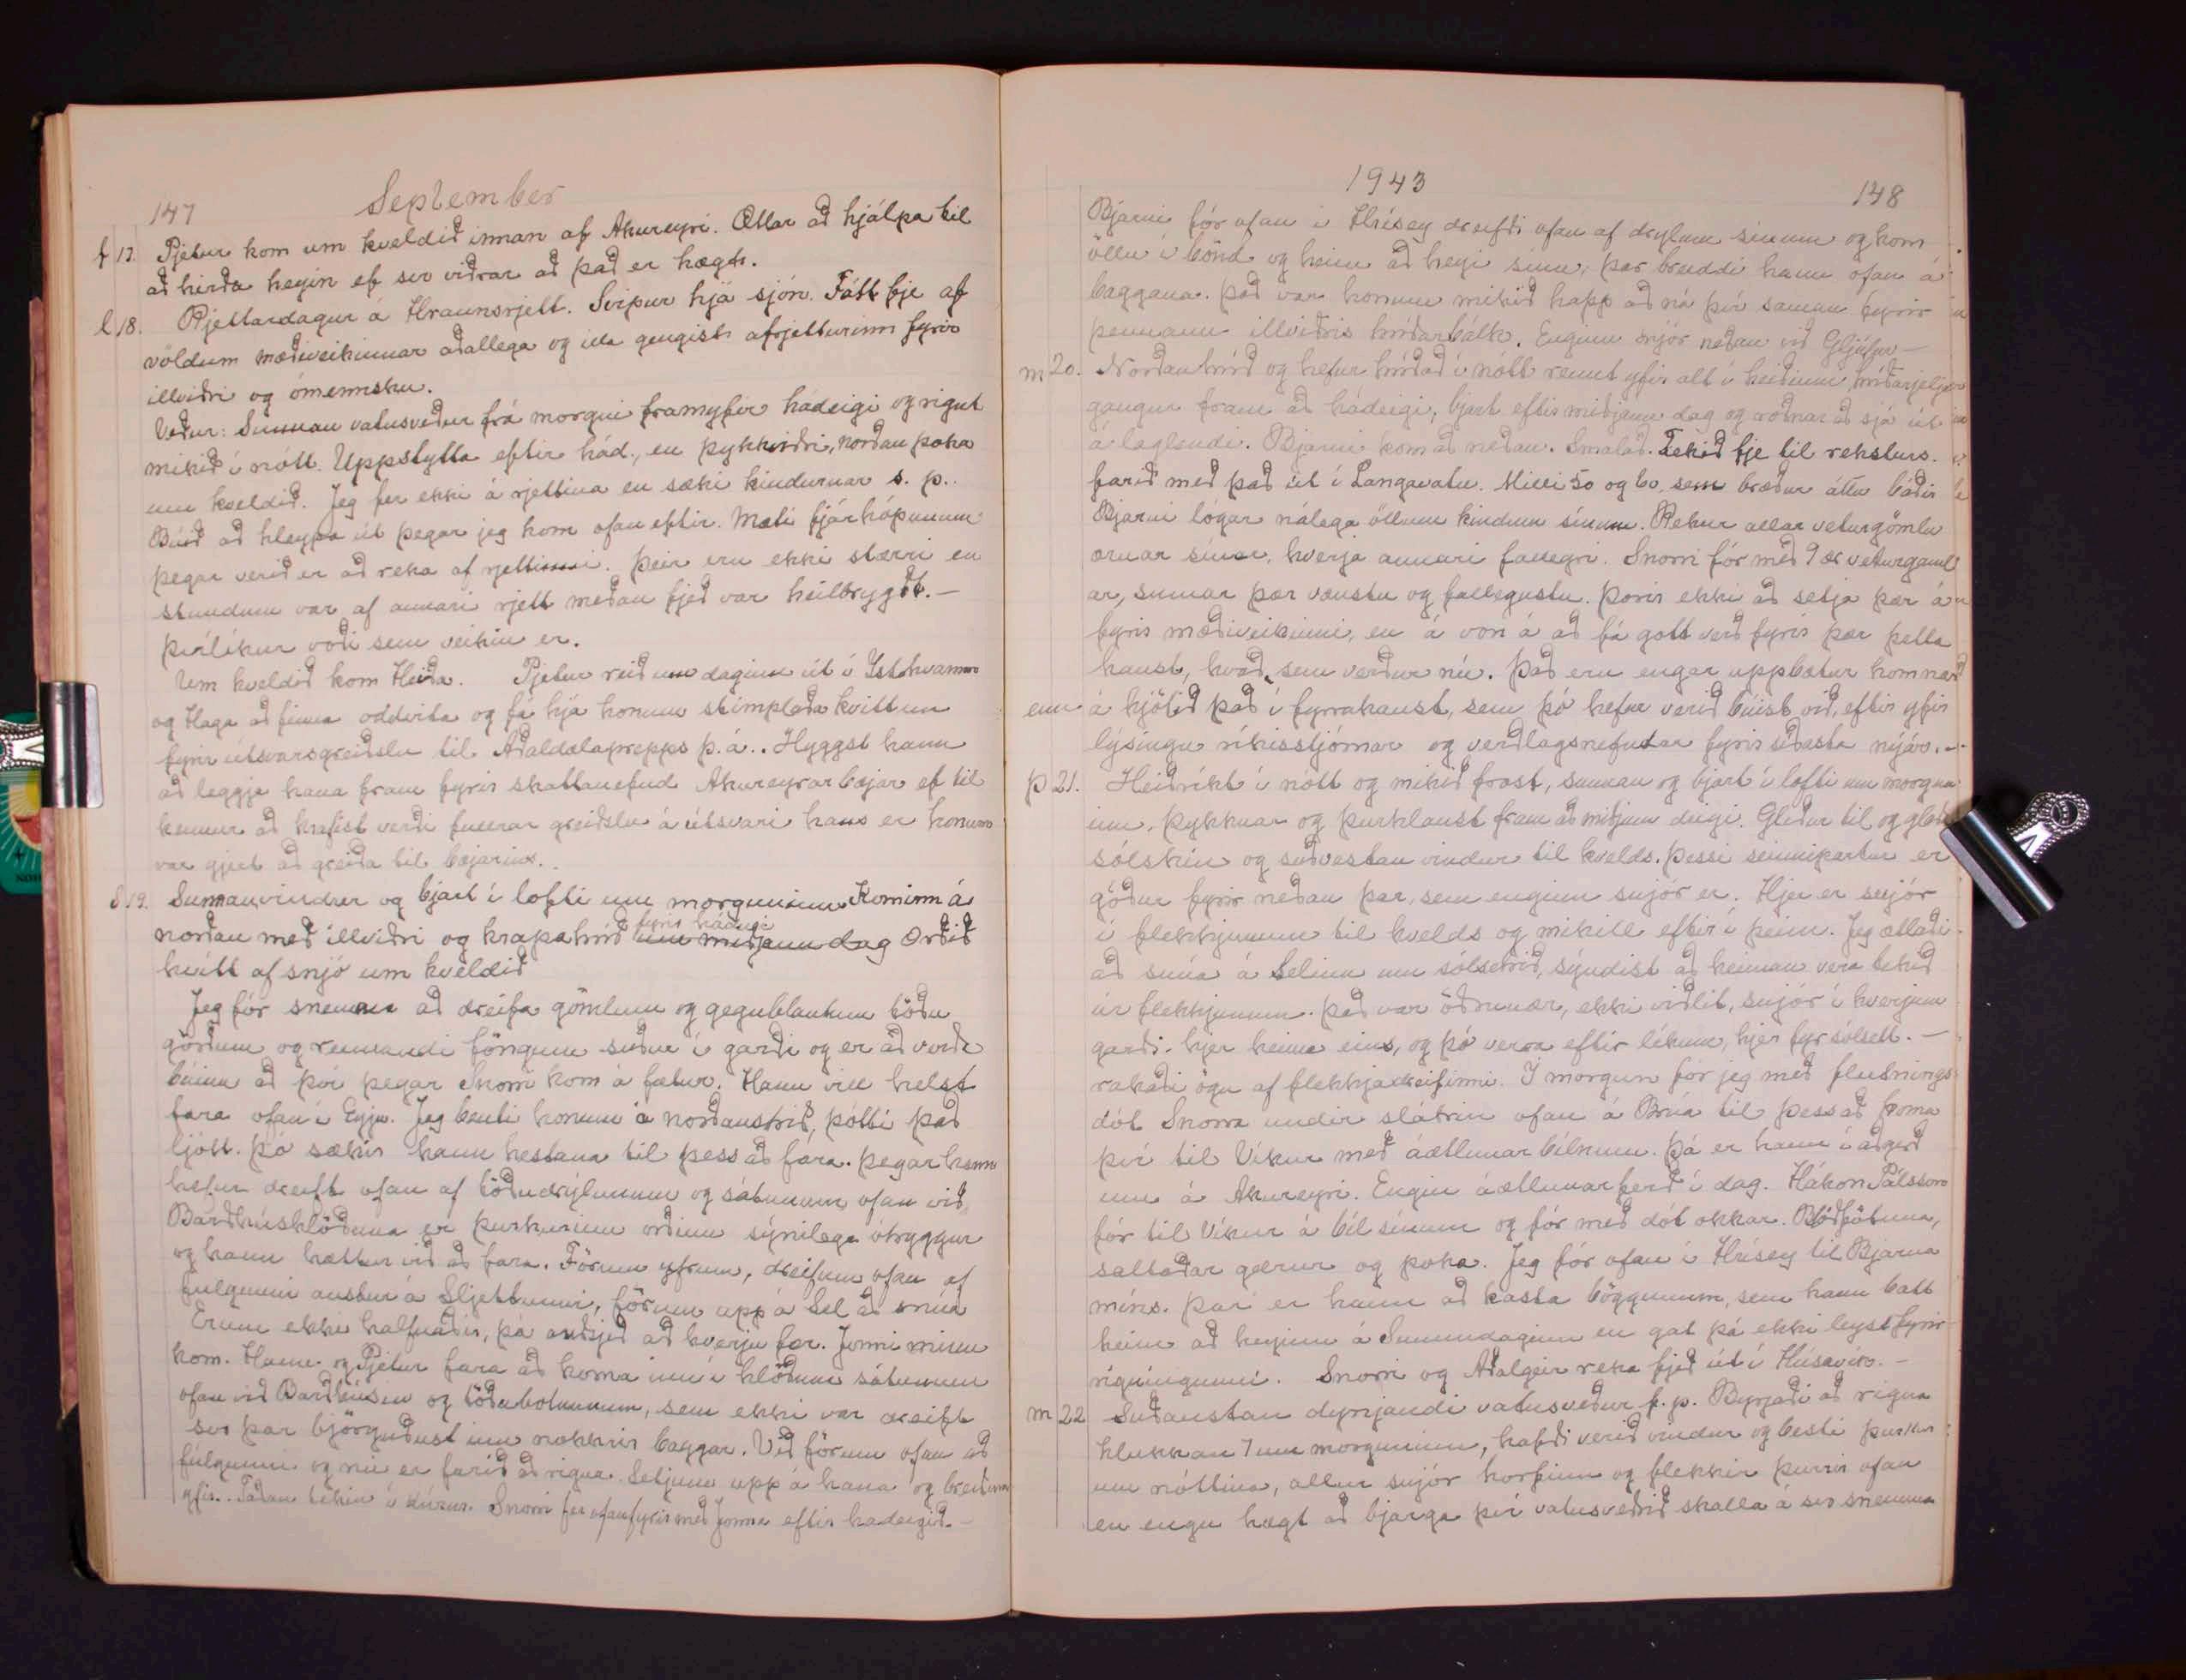 147 September
f 17. Pjetur kom um kveldið innan af Akureyri. Ætlar að hjálpa til
að hirða heyin ef svo viðrar að það er hægt.
l 18. Rjettardagur á Hraunsrjett. Svipur hjá sjón. Fátt fje af
völdum mæðiveikinnar aðallega og illa gengist afrjetturinn fyrir
illviðri og ómennsku.
Veður: Sunnan vatnsveður frá morgni framyfir hádeigi og rignt
mikið í nótt. Uppstytta eftir hád., en þykkviðri, norðan þoka
um kveldið. Jeg fer ekki á rjettina en sæki kindurnar s. p..
Búið að hleypa út þegar jeg kom ofan eftir. Mæti fjárhópunum
þegar verið er að reka af rjettinni. Þeir eru ekki stærri en
stundum var af annari rjett meðan fjeð var heilbrygðt. —
Þvílíkur voði sem veikin er.
Um kveldið kom Heiða. Pjetur reið um daginn út í Ystahvamm
og Haga að finna oddvita og fá hjá honum stimplaða kvittun
fyrir útsvarsgreiðslu til Aðaldælahrepps þ.á.. Hyggst hann
að leggja hana fram fyrir skattanefnd Akureyrarbæjar ef til
kemur að krafist verði fullrar greiðslu á útsvari hans er honum
var gjert að greiða til bæjarins.
S 19. Sunnanvindur og bjart í lofti um morguninn Kominn á
norðan með illviðri og krapahríð um miðjann dag Orðið
fyrir hádegi
hvítt af snjó um kveldið
Jeg fór snemma að dreifa gömlum og gegnblautum töðu
görðum og rennandi föngum suður í garði og er að verða
búinn að því þegar Snorri kom á fætur. Hann vill helst
fara ofan í Eyju. Jeg benti honum á norðaustrið, þótti það
ljótt. Þó sækir hann hestana til þess að fara. Þegar hann
hefur dreift ofan af töðudrýlunum og sátunum ofan við
Barðhúshlöðuna er þurkurinn orðinn sýnilega ótryggur
og hann hættur við að fara. Förum yfrum, dreifum ofan af
fúlgunni austur á Sljettunni, förum upp á Sel að snúa
Erum ekki hálfnaðir, þá auðsjeð að hverju fer. Jonni minn
kom. Hann og Pjetur fara að koma inn í hlöðuna sátunum
ofan við Barðhúsin og töðubotnunum, sem ekki var dreift
svo þar björguðust inn nokkrir baggar. Við förum ofan að
fúlgunni og nú er farið að rigna. Setjum upp á hana og breiðum
yfir. Taðan tekin í Snorri fer ofanfyrir með Jonna eftir hádegið. —
1943 148
Bjarni fór ofan í Hrísey dreifði ofan af drýlum sínum og kom
öllu í bönd og heim að heyi sínu, þar breiddi hann ofan á
baggana. Það var honum mikið happ að ná því saman fyrir
þennann illviðris hríðarbálk. Enginn snjór neðan við Gljúfur —
m 20. Norðanhríð og hefur hríðað í nótt rennt yfir alt í heiðinni hríðarjeljagangur fram að hádeigi, bjart eftir miðjann dag og roðnar að sjá út
á láglendi. Bjarni kom að neðan. Smalað. Tekið fje til reksturs.
farið með það út í Langavatn. Milli 50 og 60, sem bræður áttu báðir
Bjarni lógar nálega öllum kindum sínum. Rekur allar veturgömlu
ærnar sínar, hverja annari fallegri. Snorri fór með 9 ær veturgaml
ar, sumar þær vænstu og fallegustu. Þorir ekki að setja þær á
fyrir mæðiveikinni, en á von á að fá gott verð fyrir þær þetta
haust, hvað sem verður nú. Það eru engar uppbætur komnar
enn á kjötið það í fyrrahaust, sem þó hefur verið búist við, eftir yfir
lýsingu ríkisstjórnar og verðlagsnefndar fyrir síðasta nýár. —
Þ 21. Heiðríkt í nótt og mikið frost, sunnan og bjart í lofti um morgun
inn, þykknar og þurklaust fram að miðjum degi. Glaður til og glatt
sólskin og suðvestan vindur til kvelds. Þessi seinnipartur er
góður fyrir neðan þar, sem enginn snjór er. Hjer er snjór
í flekkjunum til kvelds og mikill eftir í þeim. Jeg ætlaði
að snúa á Selinu um sólsetrið, sýndist að heiman vera tekið
úr flekkjunum. Það var öðru nær, ekki viðlit, snjór í hverjum
garði. hjer heima eins, og þó verra eftir líkum, hjer fyr sólsett. —
rakaði ögn af flekkjadreifinni. Í morgun fór jeg með flutnings
dót Snorra undir slátrin ofan á Brúa til þess að koma
því til Víkur með áætlunarbílnum. Þá er hann í aðgerð
inn á Akureyri. Engin áætlunarferð í dag. Hákon Pálsson
fór til Víkur á bíl sínum og fór með dót okkar. Blóðfötuna,
saltaðar gærur og poka. Jeg fór ofan í Hrísey til Bjarna
míns. Þar er hann að kasta böggunum, sem hann batt
heim að heyinu á Sunnudaginn en gat þá ekki leyst fyrir
rigningunni. Snorri og Aðalgeir reka fjeð út í Húsavík. —
m 22 Suðaustan dynjandi vatnsveður f. p. Byrjaði að rigna
klukkan 7 um morguninn, hafði verið vindur og besti þurkur
um nóttina, allur snjór horfinn og flekkir þurrir ofan
en engu hægt að bjarga því vatnsveðrið skalla á svo snemma